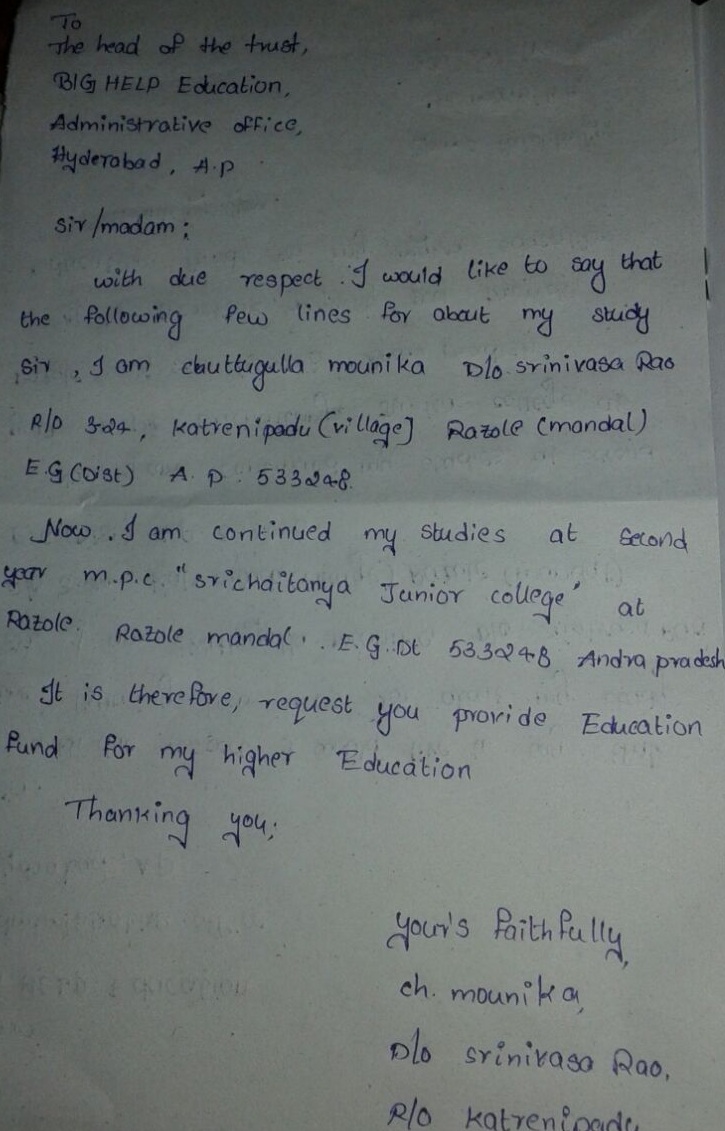 To
The head of the trust,
BIG HELP Education,
Administrative office,
Hyderabad, A.P
Sir/madam;
with due respect. I would like to say that
the following few lines for about my study
Sir, I am chuttugulla mounika D/o srinivasa Rao
R/o 3-24, Katrenipadu (village] Razole (mandal)
E.G (Dist) A.P. 533248.
Now. I am continued my studies at second
year m.p.c. "srichaitanya Junior college" at
Razole. Razole mandal.. E.G. Dt 533248 Andra pradesh
It is therefore, request you provide Education
fund for my higher Education
Thanking you;
your's faithfully,
ch. mounika,
D/o srinivasa Rao,
R/o Katrenipadu,